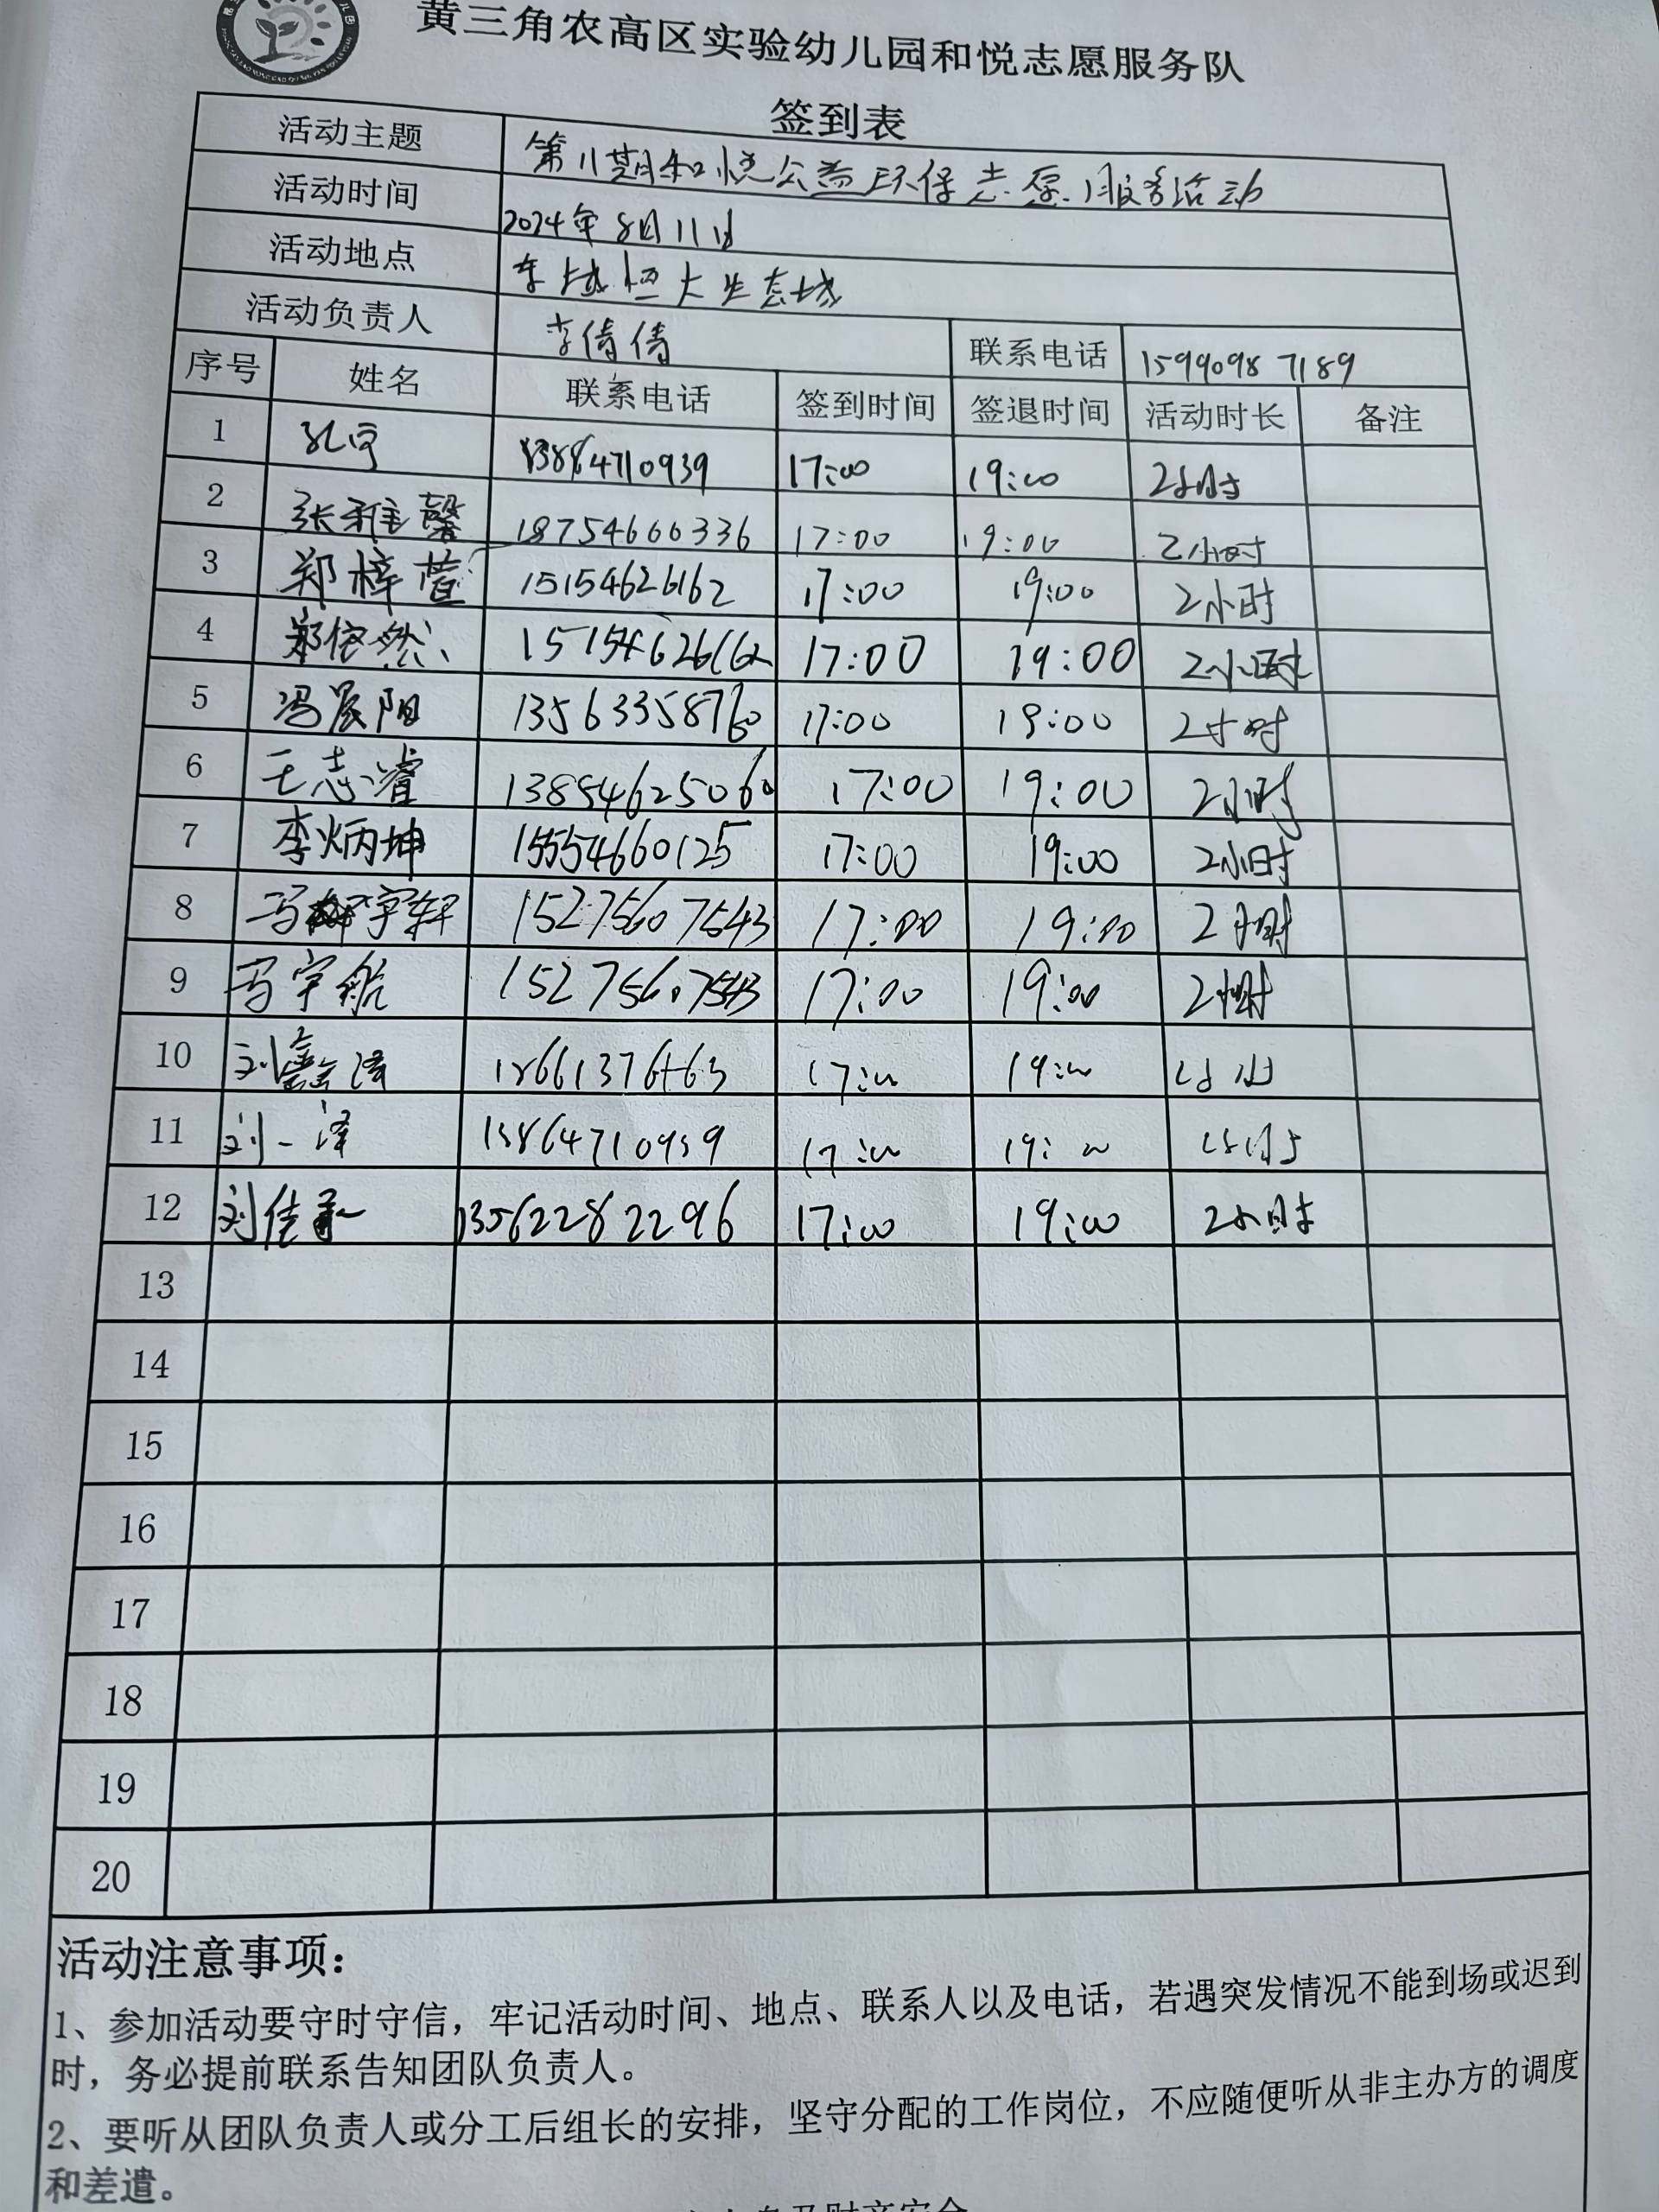 黄三角农高区实验幼儿园和悦志愿服务队
签到表
活动主题 第11期和悦公益环保志愿服务活动
活动时间 2024年8月11日
活动地点 东城恒大生态城
活动负责人 李倩倩 联系电话 15990987189
序号 姓名 联系电话 签到时间 签退时间 活动时长 备注
1 孔宁 13864710939 17:00 19:00 2小时
2 张雅馨 18754660336 17:00 19:00 2小时
3 郑梓萱 15154626162 17:00 19:00 2小时
4 郑依然 15154626162 17:00 19:00 2小时
5 冯晨阳 13563358760 17:00 19:00 2小时
6 王志濬 13854625060 17:00 19:00 2小时
7 李炳坤 15554660125 17:00 19:00 2小时
8 冯宇轩 15275607543 17:00 19:00 2小时
9 冯宇航 15275607543 17:00 19:00 2小时
10 刘鑫泽 17:00 19:00 2小时
11 刘一泽 13864710939 17:00 19:00 2小时
12 刘佳 13562282296 17:00 19:00 2小时
13
14
15
16
17
18
19
20
活动注意事项：
1、参加活动要守时守信，牢记活动时间、地点、联系人以及电话，若遇突发情况不能到场或迟到
时，务必提前联系告知团队负责人。
2、要听从团队负责人或分工后组长的安排，坚守分配的工作岗位，不应随便听从非主办方的调度
和差遣。